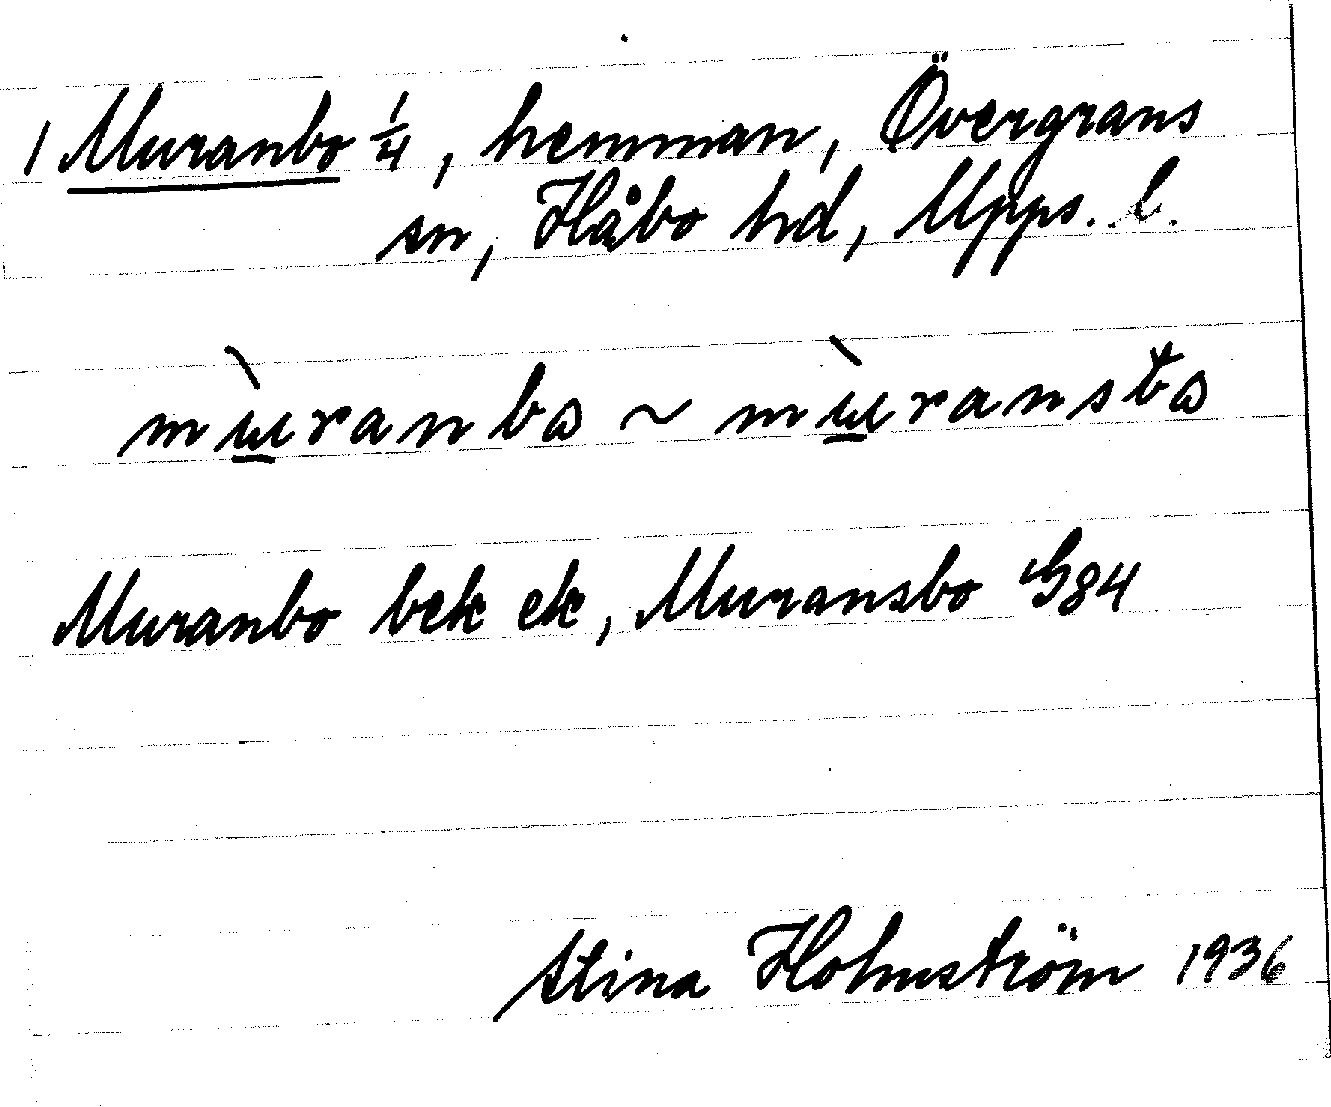 1 Muranbo 1/4, hemman, Övergrans
sn, Håbo hd, Upps. l.
mùranbo ~ mùransbo
Muranbo bek ek, Muransbo G84
Stina Holmström 1936